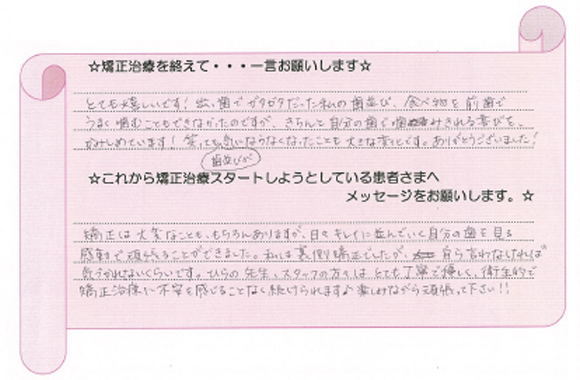 ☆矯正治療を終えて・・・一言お願いします☆
とても嬉しいです！出っ歯でガタガタだった私の歯並び、食べ物を前歯で
うまく噛むこともできなかったのですが、きちんと自分の歯で噛みきれる喜びを、
かみしめています！笑っても気にならなくなったことも大きな変化です。ありがとうございました！
歯並びが
☆これから矯正治療スタートしようとしている患者さまへ
メッセージをお願いします。☆
矯正は大変なことも、もちろんありますが、日々キレイに並んでいく自分の歯を見る
感動で頑張ることができました。私は裏側矯正でしたが、自ら言わなければ
気づかれないくらいです。ひらの先生、スタッフの方々はとても丁寧で優しく、衛生的で
矯正治療に不安を感じることなく続けられます♪楽しみながら頑張って下さい！！